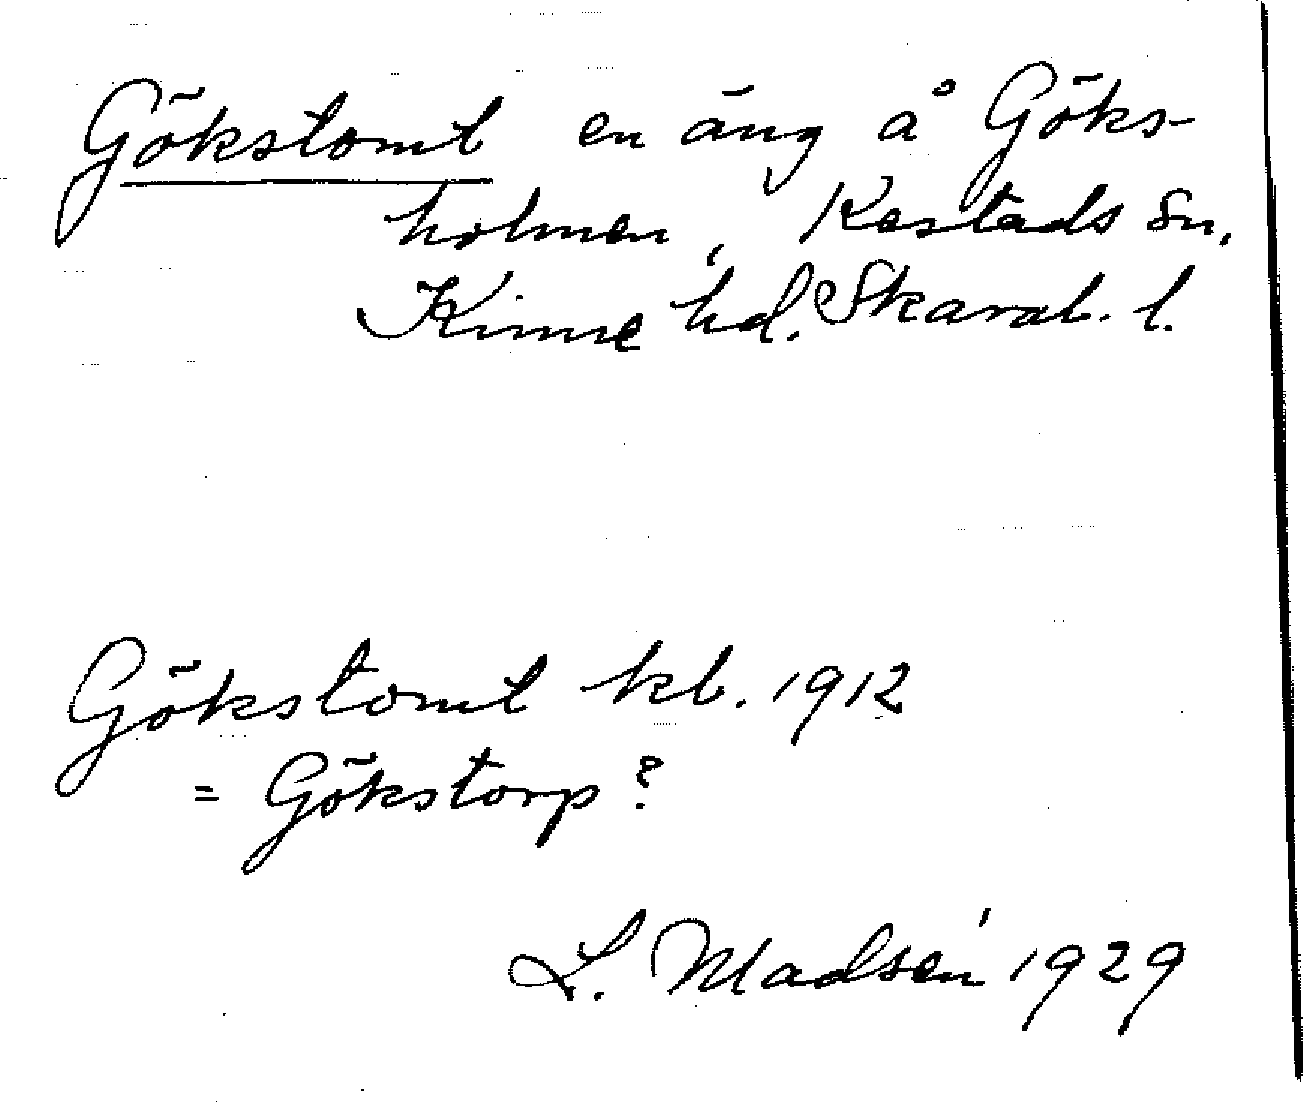 Gökstomt en äng å Göks-
holmen, Kestads sn,
Kinne hd. Skarab. l.
Gökstomt kb. 1912
= Gökstorp?
L. Madsén 1929